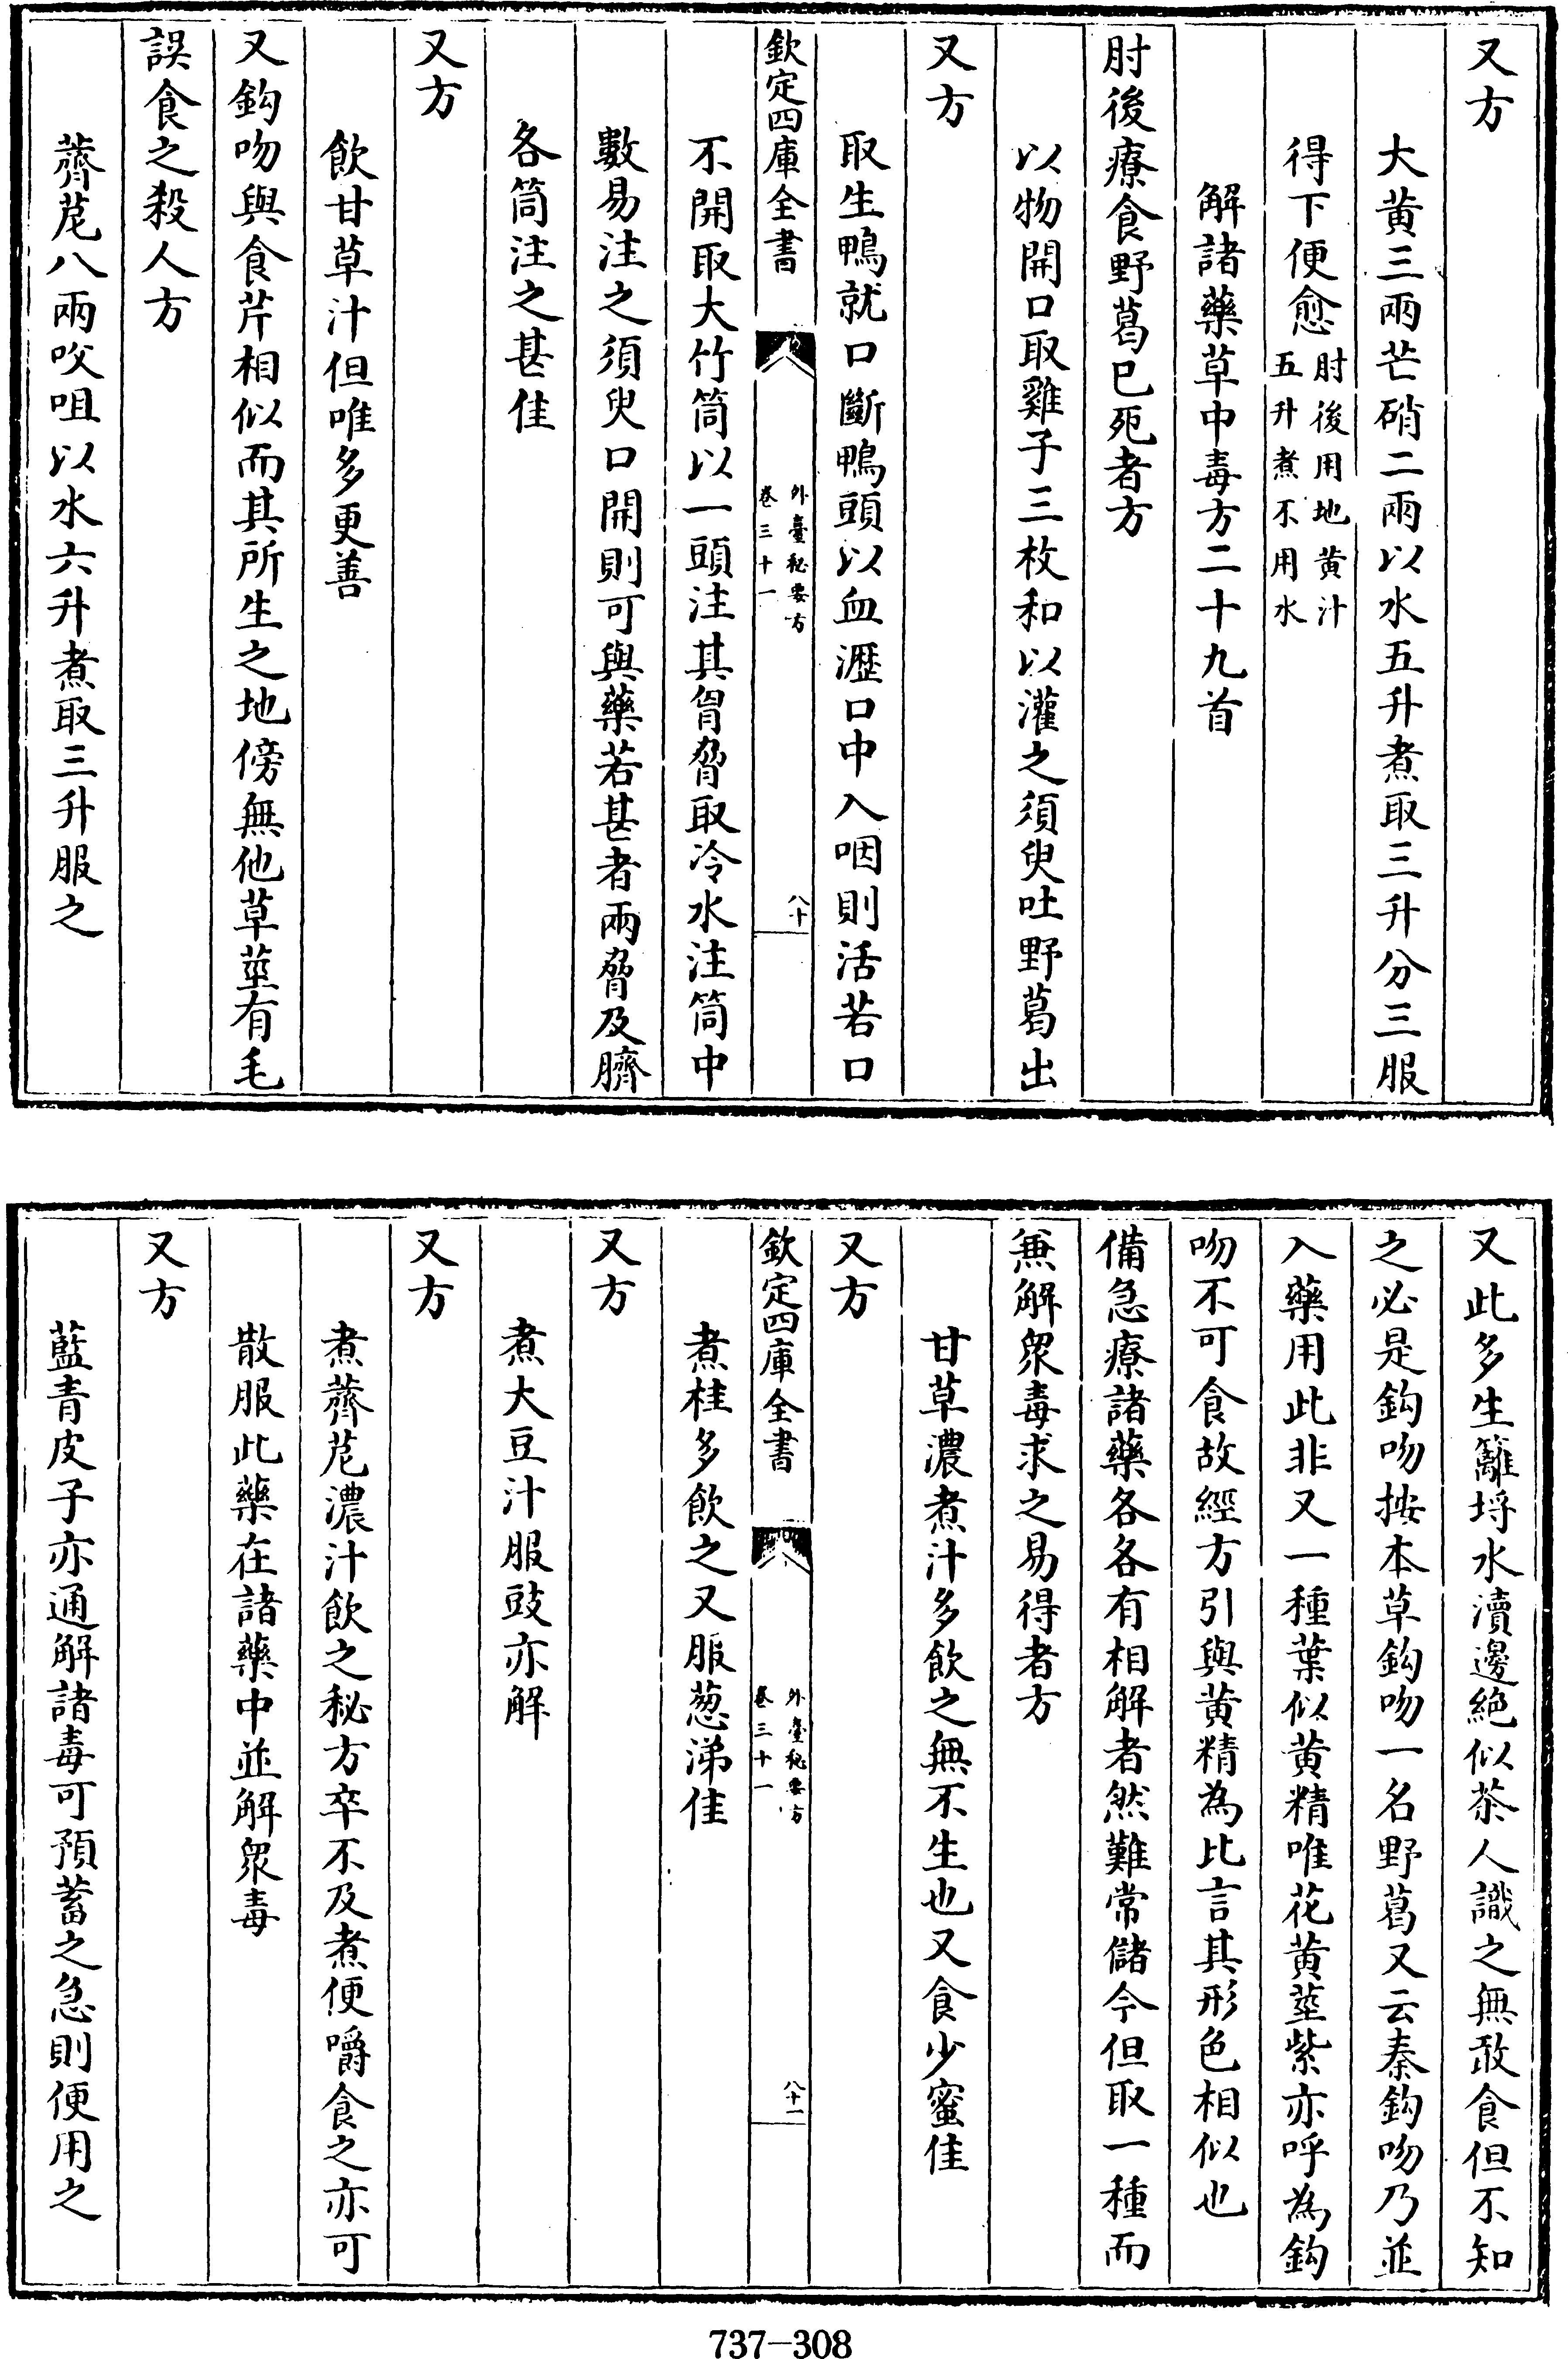 又方
大黄三兩芒硝二兩以水五升煮取三升分三服
得下便愈肘後用地黄汁
五升煮不用水
解諸藥草中毒方二十九首
肘後療食野葛已死者方
以物開口取雞子三枚和以灌之須臾吐野葛出
又方
取生鴨就口斷鴨頭以血瀝口中入咽則活若口
欽定四庫全書
外臺秘要方
卷三十一
八十
不開取大竹筒以一頭注其胷脅取冷水注筒中
數易注之須臾口開則可與藥若甚者兩脅及臍
各筒注之甚佳
又方
飲甘草汁但唯多更善
又鈎吻與食芹相似而其所生之地傍無他草莖有毛
誤食之殺人方
薺苨八兩㕮咀以水六升煮取三升服之
又此多生籬埒水瀆邊絶似茶人識之無敢食但不知
之必是鈎吻按本草鈎吻一名野葛又云秦鈎吻乃並
入藥用此非又一種葉似黄精唯花黄莖紫亦呼為鈎
吻不可食故經方引與黄精為比言其形色相似也
備急療諸藥各各有相解者然難常儲今但取一種而
兼解衆毒求之易得者方
甘草濃煮汁多飲之無不生也又食少蜜佳
又方
欽定四庫全書
外臺秘要方
卷三十一
八十一
煮桂多飲之又服葱涕佳
又方
煮大豆汁服豉亦解
又方
煮薺苨濃汁飲之秘方卒不及煮便嚼食之亦可
散服此藥在諸藥中並解衆毒
又方
藍青皮子亦通解諸毒可預蓄之急則便用之
737-308